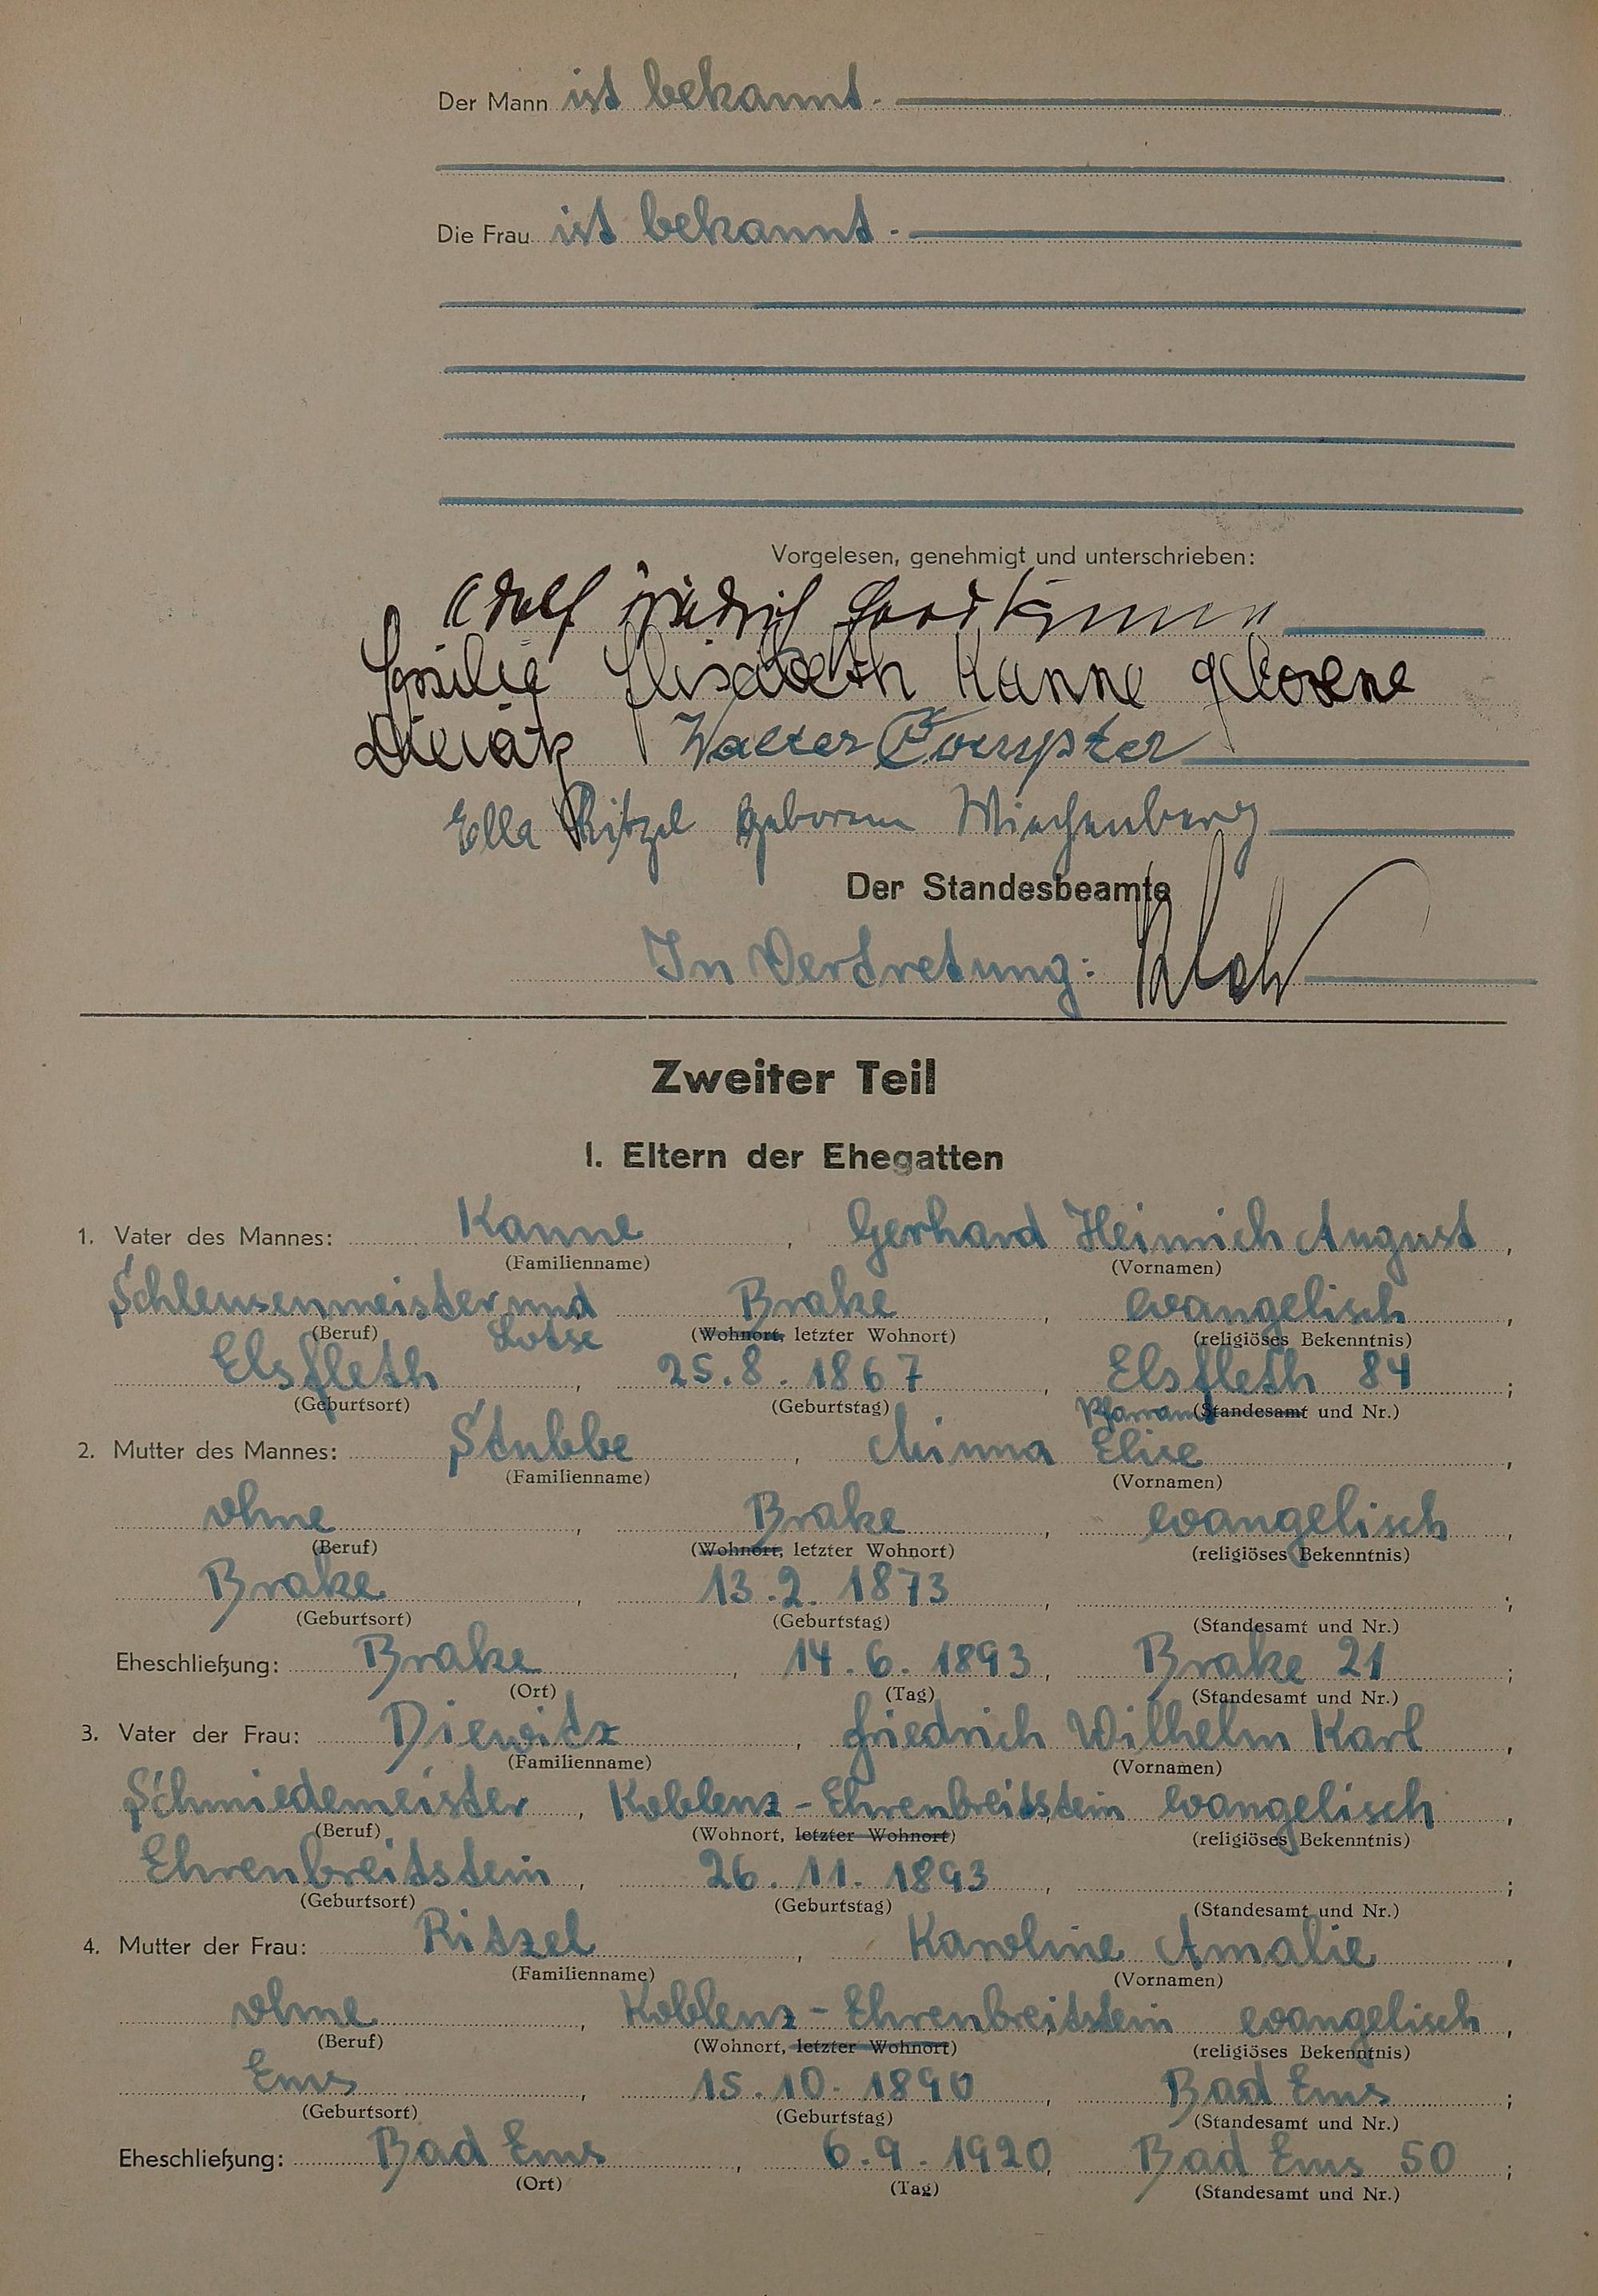 Der Mann ist bekannt.
Die Frau ist bekannt.
Vorgelesen, genehmigt und unterschrieben:
Adolf Friedrich Kanne
Elisabeth Kanne geborene
Diewitz Walter
Ella Ritzel geboren
Der Standesbeamte
In Vertretung:
Zweiter Teil
I. Eltern der Ehegatten
1. Vater des Mannes: Kanne, Gerhard Heinrich August,
(Familienname) (Vornamen)
Schleusenmeister und Brake, evangelisch,
(Beruf) Lotse (Wohnort, letzter Wohnort) (religiöses Bekenntnis)
Elsfleth, 25.8.1867, Elsfleth 84;
(Geburtsort) (Geburtstag) Pfarramt (Standesamt und Nr.)
2. Mutter des Mannes: Stubbe, Minna Elise,
(Familienname) (Vornamen)
ohne, Brake, evangelisch,
(Beruf) (Wohnort, letzter Wohnort) (religiöses Bekenntnis)
Brake, 13.2.1873, ;
(Geburtsort) (Geburtstag) (Standesamt und Nr.)
Eheschließung: Brake, 14.6.1893, Brake 21;
(Ort) (Tag) (Standesamt und Nr.)
3. Vater der Frau: Diewitz, Friedrich Wilhelm Karl,
(Familienname) (Vornamen)
Schmiedemeister, Koblenz-Ehrenbreitstein evangelisch,
(Beruf) (Wohnort, letzter Wohnort) (religiöses Bekenntnis)
Ehrenbreitstein, 26.11.1893, ;
(Geburtsort) (Geburtstag) (Standesamt und Nr.)
4. Mutter der Frau: Ritzel, Karoline Amalie,
(Familienname) (Vornamen)
ohne, Koblenz-Ehrenbreitstein evangelisch,
(Beruf) (Wohnort, letzter Wohnort) (religiöses Bekenntnis)
Ems, 15.10.1890, Bad Ems;
(Geburtsort) (Geburtstag) (Standesamt und Nr.)
Eheschließung: Bad Ems, 6.9.1920, Bad Ems 50;
(Ort) (Tag) (Standesamt und Nr.)